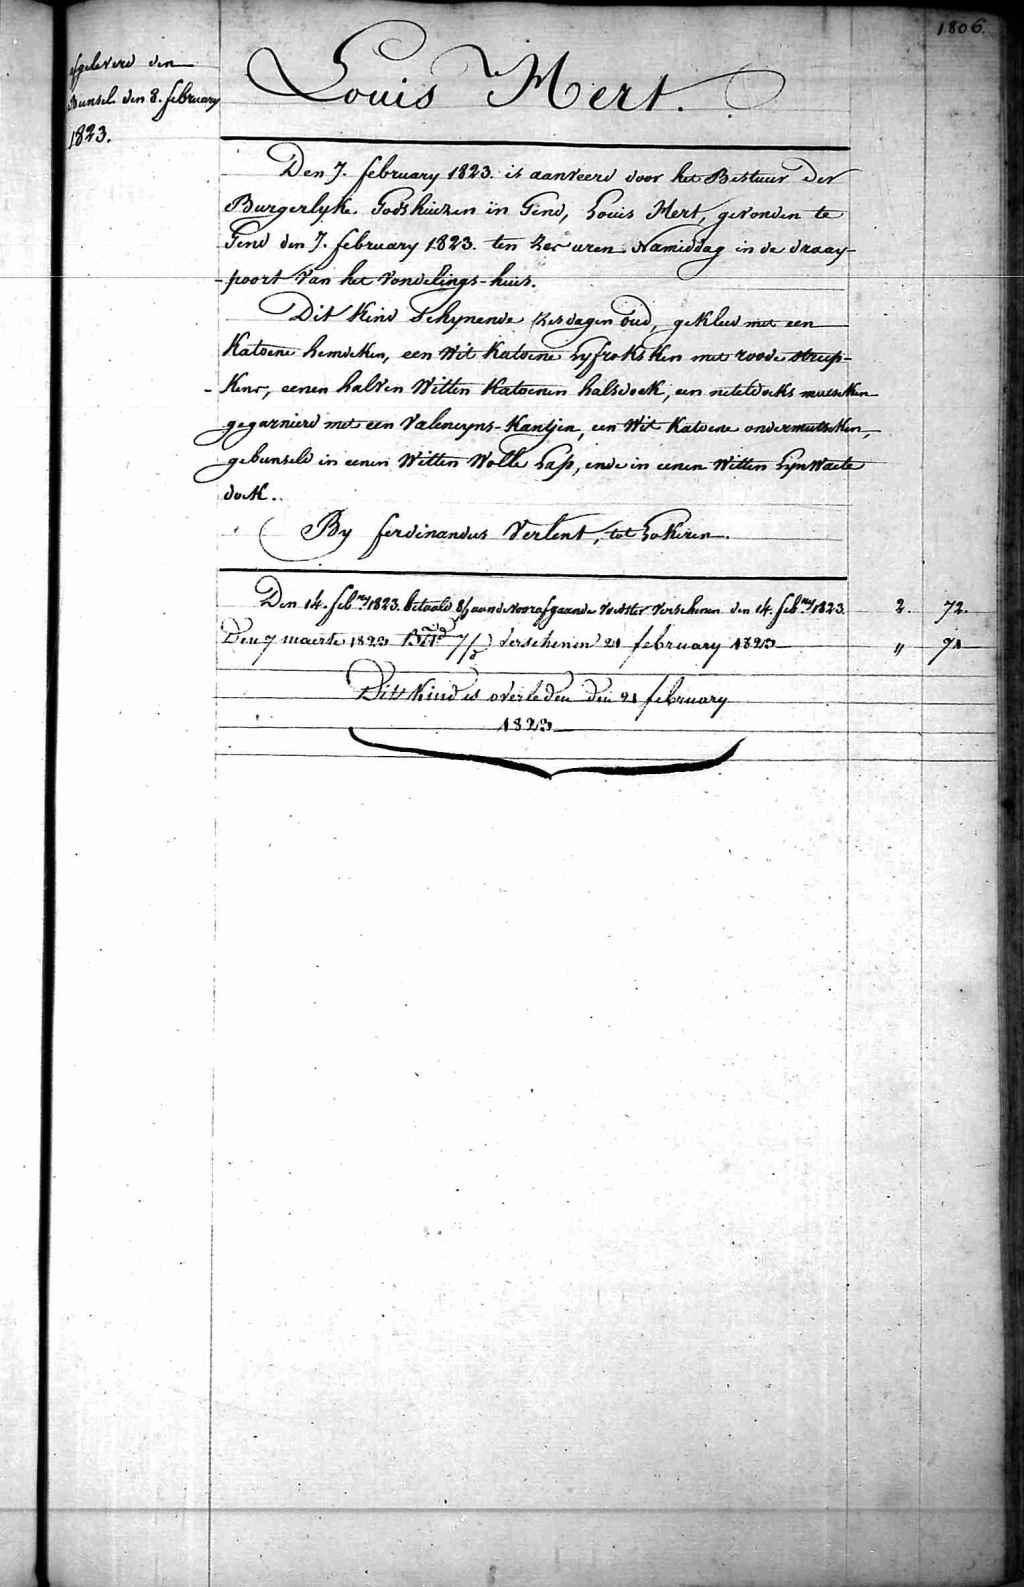 1806.
afgeleverd den
Bunsel den 8. february
1823.
Louis Mert.
Den 7. february 1823. is aanveerd door het Bestuur der
Burgerlyke Godshuizen in Gend, Louis Mert, gevonden te
Gend den 7. february 1823. ten zes uren Namiddag in de draay-
-poort van het vondelings-huis.
Dit kind schynende zes dagen oud, gekleed met een
katoene hemdeken, een wit katoene Lyfroksken met roode streep-
-kens, eenen halven witten katoenen halsdoek, een neteldoeks mutseken
gegarnierd met een valencyns-kantjen, een wit katoene ondermutseken,
gebunseld in eenen witten wolle Lap, ende in eenen witten Lynwaete
doek..
By ferdinandus Verlent, tot Lokeren.
Den 14. feb.ry 1823. betaald aan de voorafgaande voedster verschenen den 14. feb.ry 1823. 2. 72.
Den 7 maerte 1823 verschenen 21 february 1823 „ 71
Dit kind is overleden den 21 february
1823